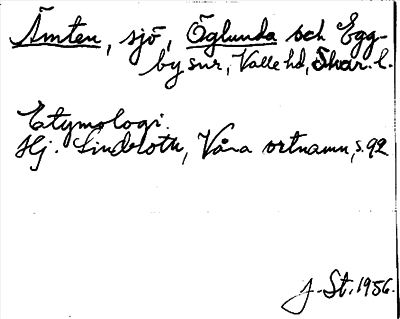 Ämten, sjö, Öglunda och Egg-
by snr, Valle hd, Skar. l.
Etymologi:
Hj. Lindroth, Våra ortnamn, s. 92
J. St. 1956.